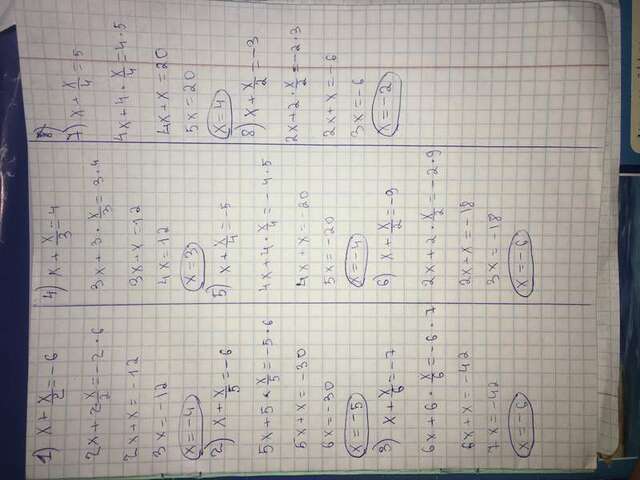 1) x + x/2 = -6
2x + 2 · x/2 = -2 · 6
2x + x = -12
3x = -12
x = -4
2) x + x/5 = -6
5x + 5 · x/5 = -5 · 6
5x + x = -30
6x = -30
x = -5
3) x + x/6 = -7
6x + 6 · x/6 = -6 · 7
6x + x = -42
7x = -42
x = -6
4) x + x/3 = 4
3x + 3 · x/3 = 3 · 4
3x + x = 12
4x = 12
x = 3
5) x + x/4 = -5
4x + 4 · x/4 = -4 · 5
4x + x = -20
5x = -20
x = -4
6) x + x/2 = -9
2x + 2 · x/2 = -2 · 9
2x + x = -18
3x = -18
x = -6
7) x + x/4 = 5
4x + 4 · x/4 = 4 · 5
4x + x = 20
5x = 20
x = 4
8) x + x/2 = -3
2x + 2 · x/2 = -2 · 3
2x + x = -6
3x = -6
x = -2